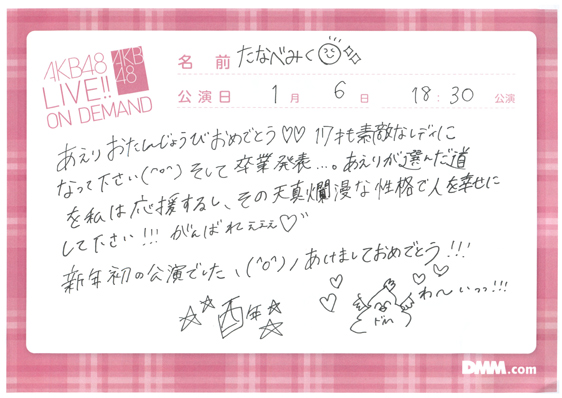 AKB48
LIVE!!
ON DEMAND
AKB
48
名前 たなべみく
公演日 1月 6日 18:30 公演
あえりおたんじょうびおめでとう♡♡ 17才も素敵なレディに
なって下さい(^o^) そして卒業発表…。あえりが選んだ道
を私は応援するし、その天真爛漫な性格で人を幸せに
して下さい!!! がんばれぇぇぇ♡
新年初の公演でした、(^o^)ノ あけましておめでとう!!!
☆☆酉年☆☆
わ〜いっっ!!!
DMM.com